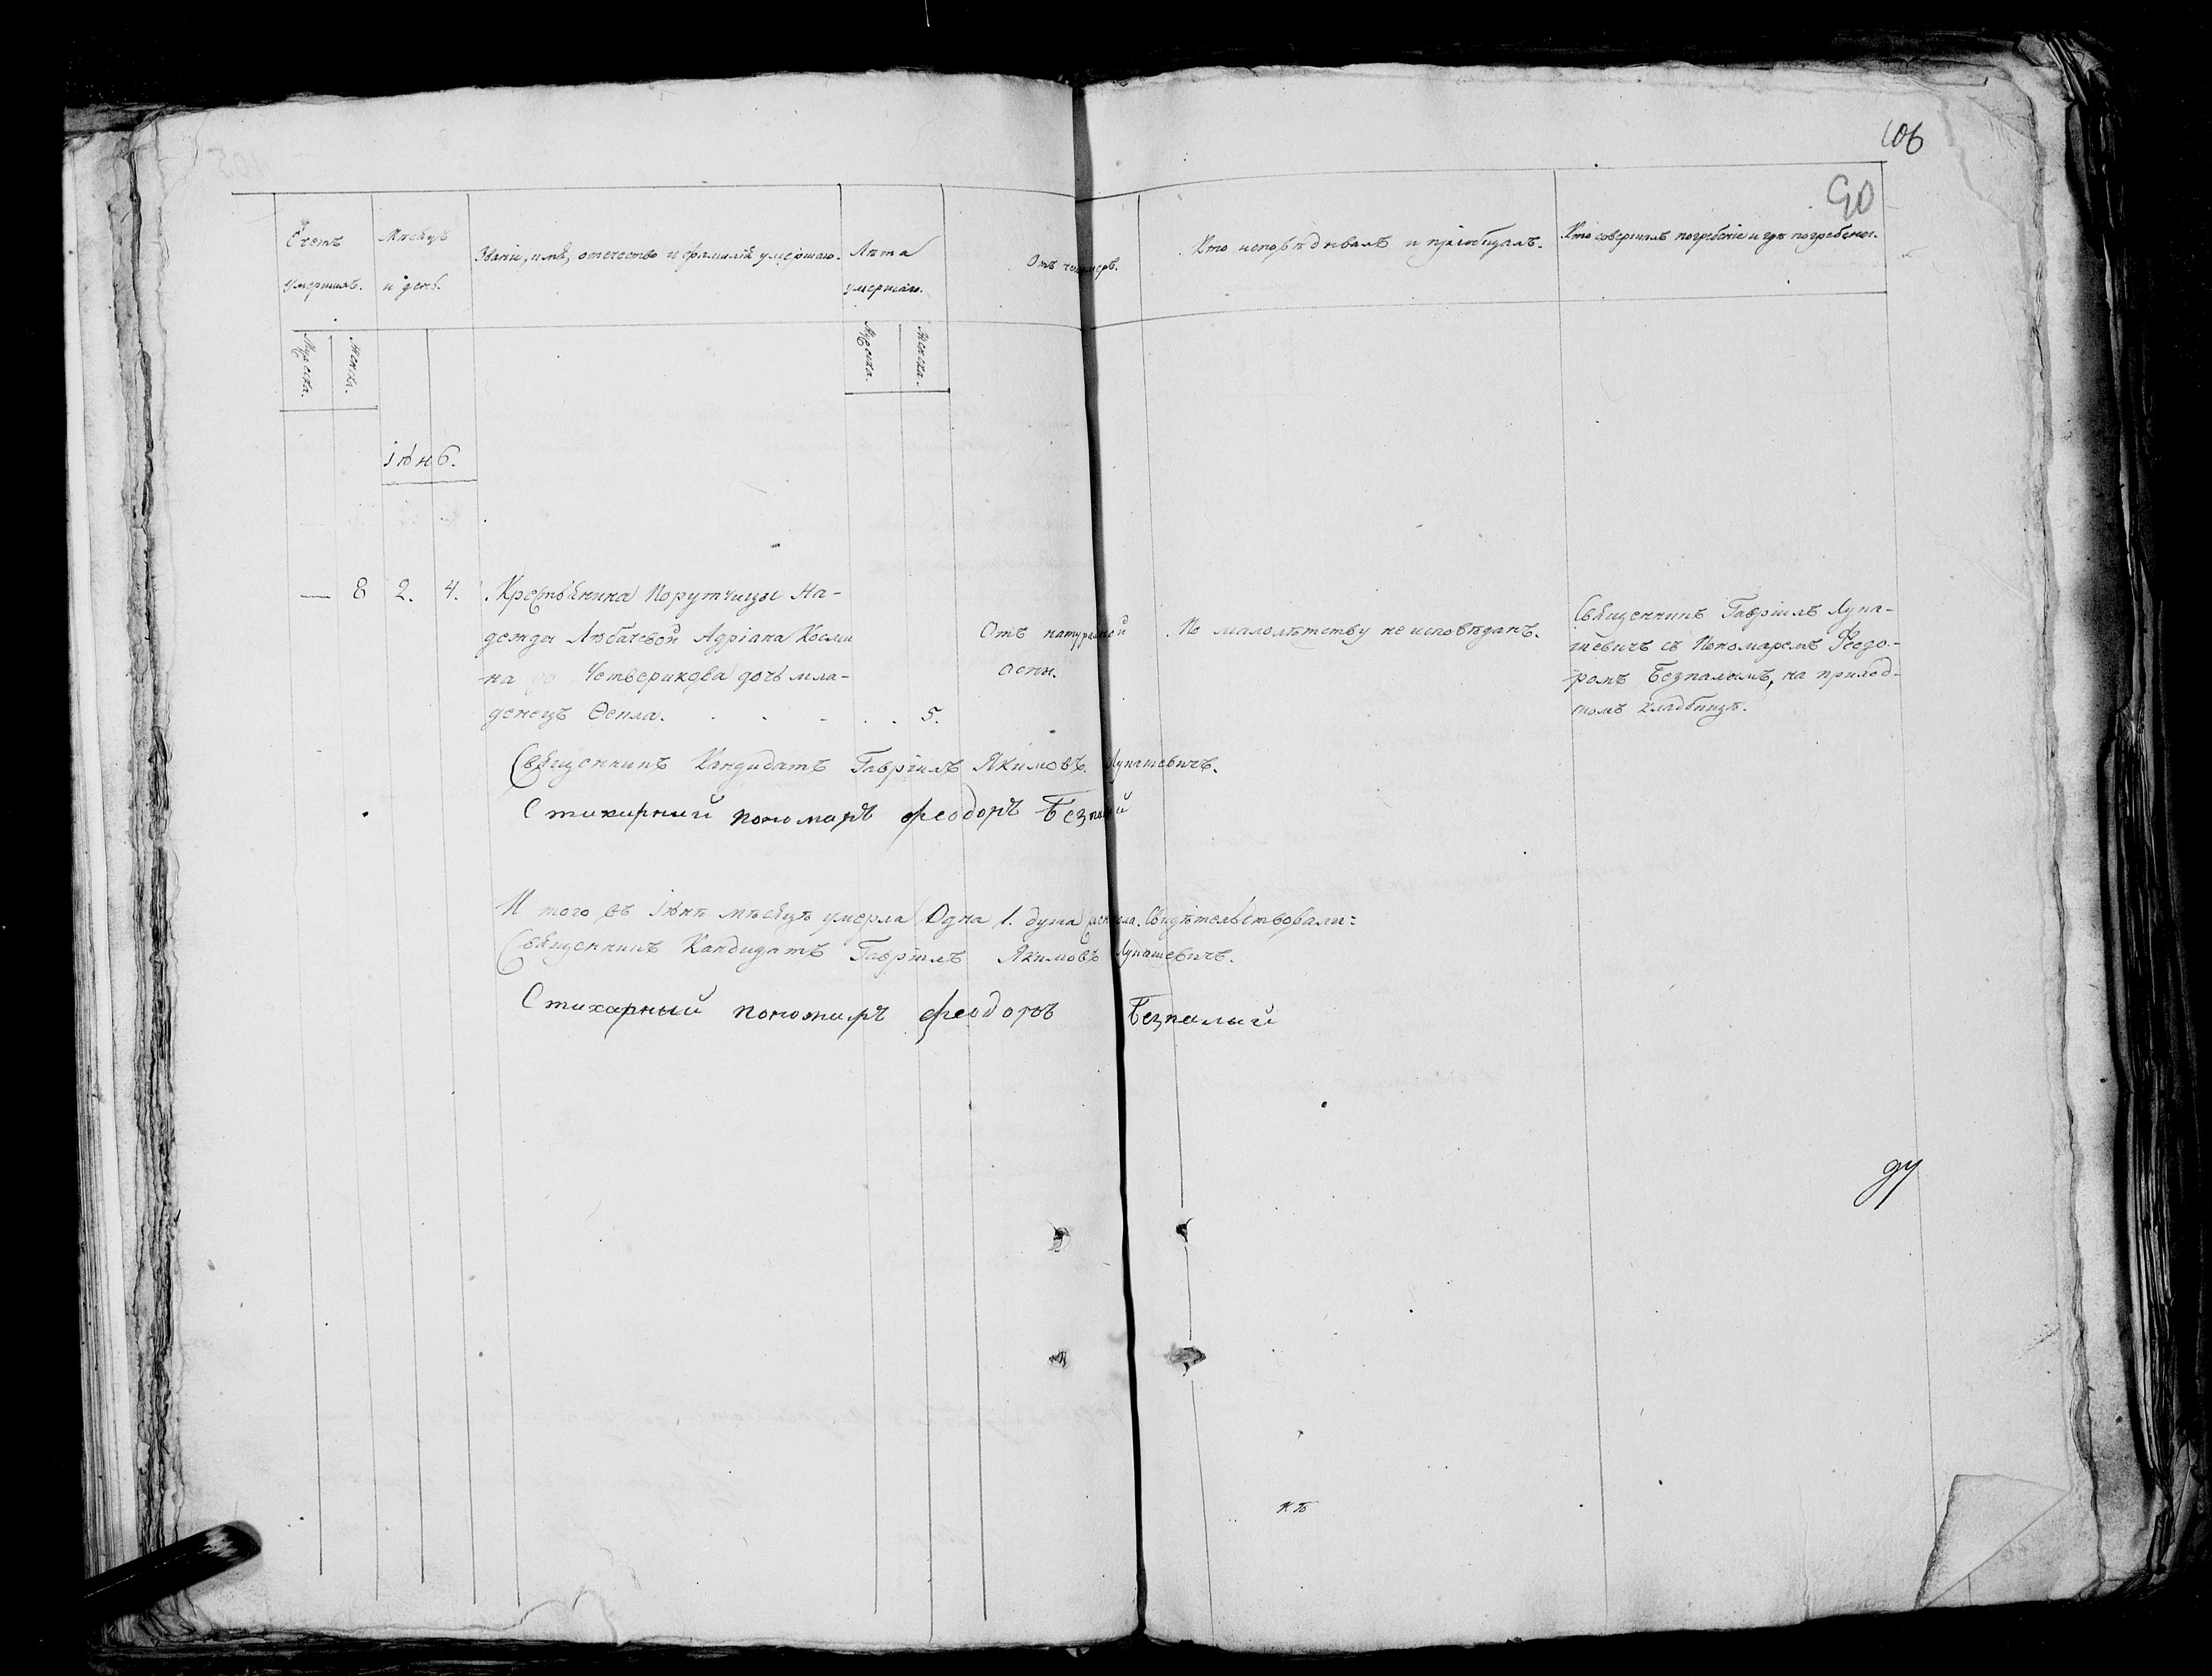 106
90
Счетъ умершихъ.
Мѣсяцъ и день.
Званіе, имя, отечество и фамилія умершаго.
Лѣта умершаго.
Отъ чего умеръ.
Кто исповѣдывалъ и пріобщалъ.
Кто совершалъ погребеніе и гдѣ погребены.
Мужеска.
Женска.
Мужеска.
Женска.
Іюнь.
— 8 2. 4.
Крестьянина Порутчицы На-
дежды Любачевой Адріана Косми
на Четверикова дочь мла-
денецъ Ѳекла. 5.
Отъ натуральной
аспы.
По малолѣтству не исповѣданъ.
Священникъ Гавріилъ Лупа-
шевичъ съ Пономаремъ Ѳеодо-
ромъ Безпалымъ, на приход-
скомъ кладбищѣ.
Священникъ Кандидатъ Гавріилъ Якимовъ Лупашевичъ.
Стихарный пономарь Феодоръ Безпалый
И того въ Іюнѣ мѣсяцѣ умерла Одна 1. душа женска. Свидѣтельствовали:
Священникъ Кандидатъ Гавріилъ Якимовъ Лупашевичъ.
Стихарный пономарь Феодоръ Безпалый